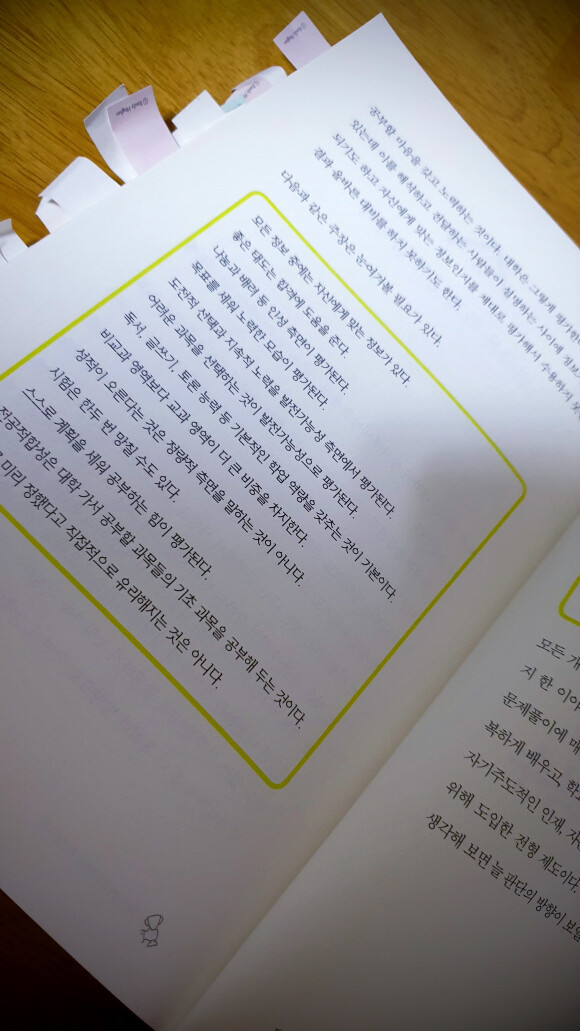 공부할 마음을 갖고 노력하는 것이다. 대학은 그렇게 평가하
있는데 이를 해석하고 전달하는 사람들이 설명하는 사이에 정보
되기도 하고, 자신에게 맞는 정보인지를 제대로 평가해서 수용하지 못
결과 올바른 대비를 하지 못하기도 한다.
다음과 같은 주장은 눈여겨볼 필요가 있다.
모든 정보 중에는 자신에게 맞는 정보가 있다.
좋은 태도는 합격에 도움을 준다.
나눔과 배려 등 인성 측면이 평가된다.
목표를 세워 노력한 모습이 평가된다.
도전적 선택과 지속적 노력을 발전가능성 측면에서 평가된다.
어려운 과목을 선택하는 것이 발전가능성으로 평가된다.
독서, 글쓰기, 토론 능력 등 기본적인 학업 역량을 갖추는 것이 기본이다.
비교과 영역보다 교과 영역이 더 큰 비중을 차지한다.
성적이 오른다는 것은 정량적 측면을 말하는 것이 아니다.
시험은 한두 번 망칠 수도 있다.
스스로 계획을 세워 공부하는 힘이 평가된다.
전공적합성은 대학 가서 공부할 과목들의 기초 과목을 공부해 두는 것이다.
미리 정했다고 직접적으로 유리해지는 것은 아니다.
모든 개
지 한 이야
문제풀이에 매
복하게 배우고, 학
자기주도적인 인재, 자
위해 도입한 전형 제도이다
생각해 보면 늘 판단의 방향이 보일